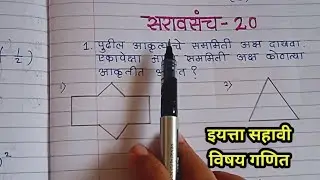 सरावसंच - 20
1. पुढील आकृत्यांचे सममिती अक्ष दाखवा.
एकापेक्षा सममिती अक्ष कोणत्या
आकृतीत ?
1)
2)
इयत्ता सहावी
विषय गणित